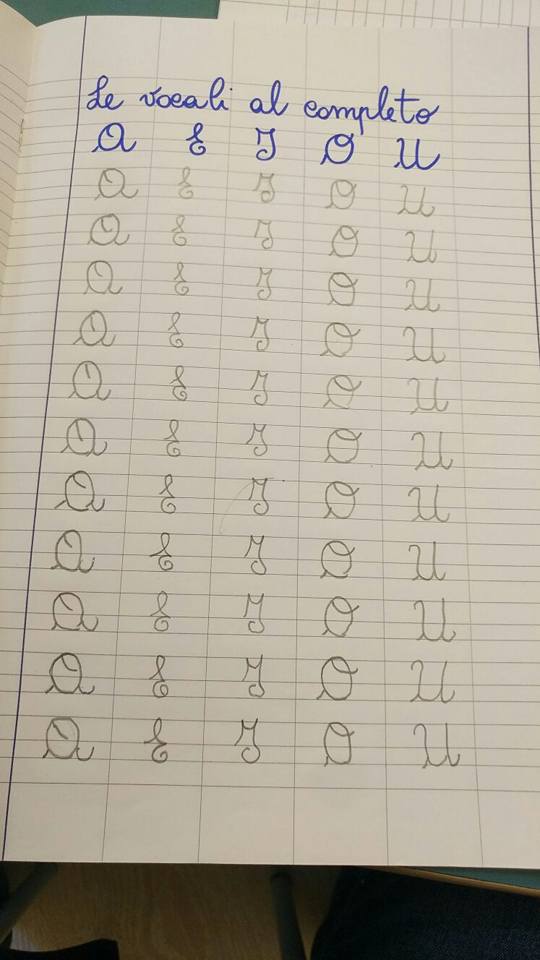 Le vocali al completo
A E I O U
A E I O U
A E I O U
A E I O U
A E I O U
A E I O U
A E I O U
A E I O U
A E I O U
A E I O U
A E I O U
A E I O U